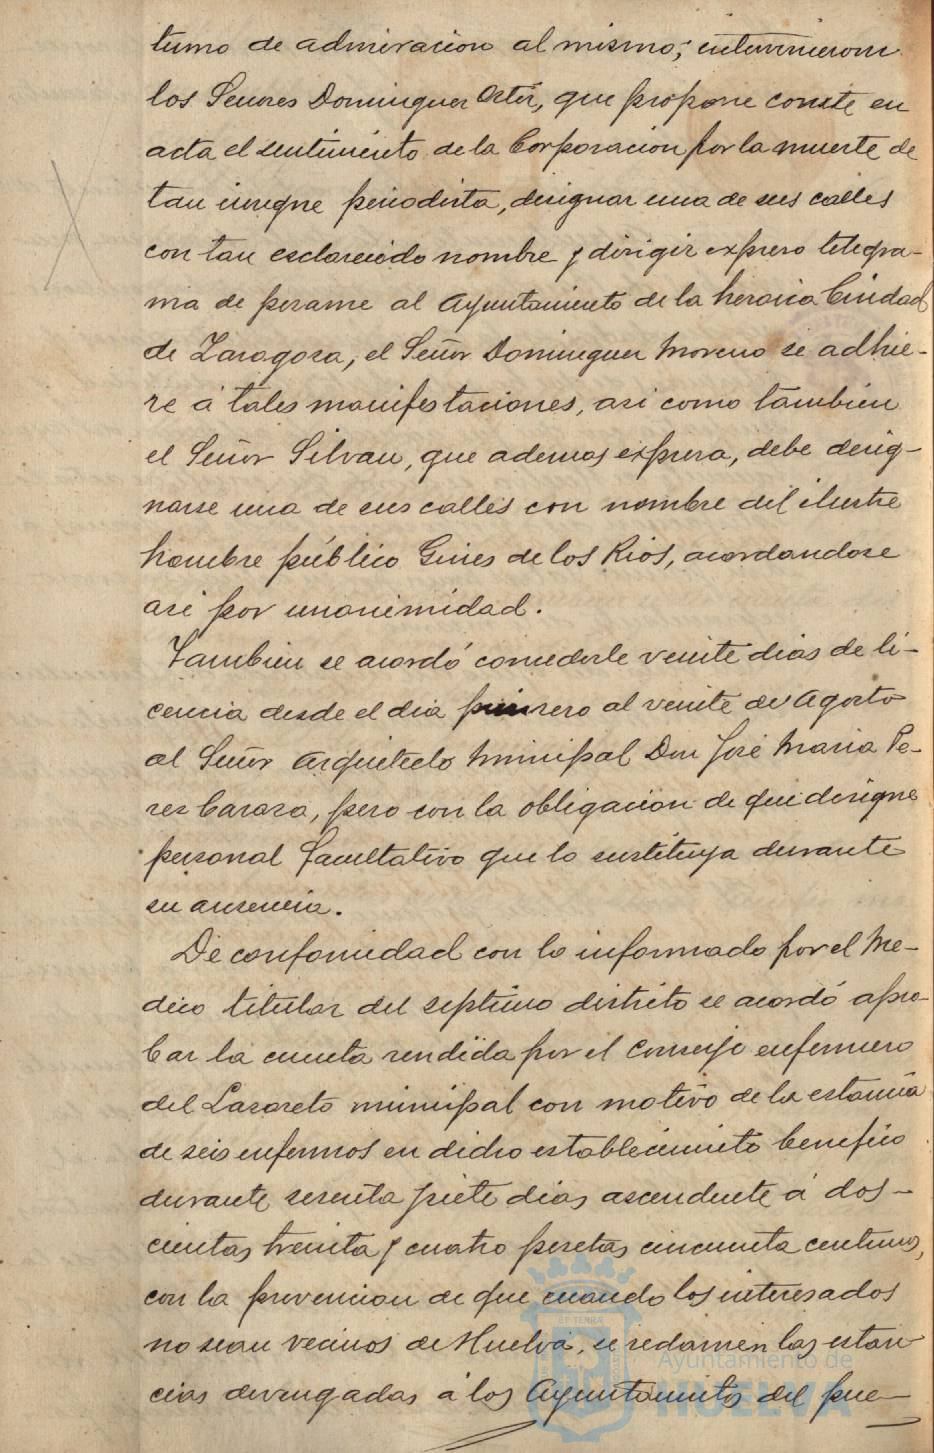 tumo de admiracion al mismo; intervinieron
los Señores Dominguez Ortiz, que propone conste en
acta el sentimiento de la Corporacion por la muerte de
tan insigne periodista, designar una de sus calles
con tan esclarecido nombre y dirigir expreso telegra-
ma de pesame al Ayuntamiento de la heroica Ciudad
de Zaragoza, el Señor Dominguez Moreno se adhie-
re á tales manifestaciones, asi como tambien
el Señor Silvan, que ademas expresa, debe desig-
narse una de sus calles con nombre del ilustre
hombre público Gines de los Rios, acordandose
asi por unanimidad.
Tambien se acordó concederle veinte dias de li-
cencia desde el dia primero al veinte de Agosto
al Señor Arquitecto Municipal Don José Maria Pe-
rez Carasa, pero con la obligacion de que designe
personal facultativo que lo sustituya durante
su ausencia.
De conformidad con lo informado por el Me-
dico titular del septimo distrito se acordó apro-
bar la cuenta rendida por el Conserje enfermero
del Lazareto municipal con motivo de la estancia
de seis enfermos en dicho establecimiento benefico
durante sesenta y siete dias ascendente á dos-
cientas treinta y cuatro pesetas cincuenta centimos,
con la prevencion de que cuando los interesados
no sean vecinos de Huelva, se reclamen las estan
cias devengadas á los Ayuntamientos del pue-
Ayuntamiento de
HUELVA